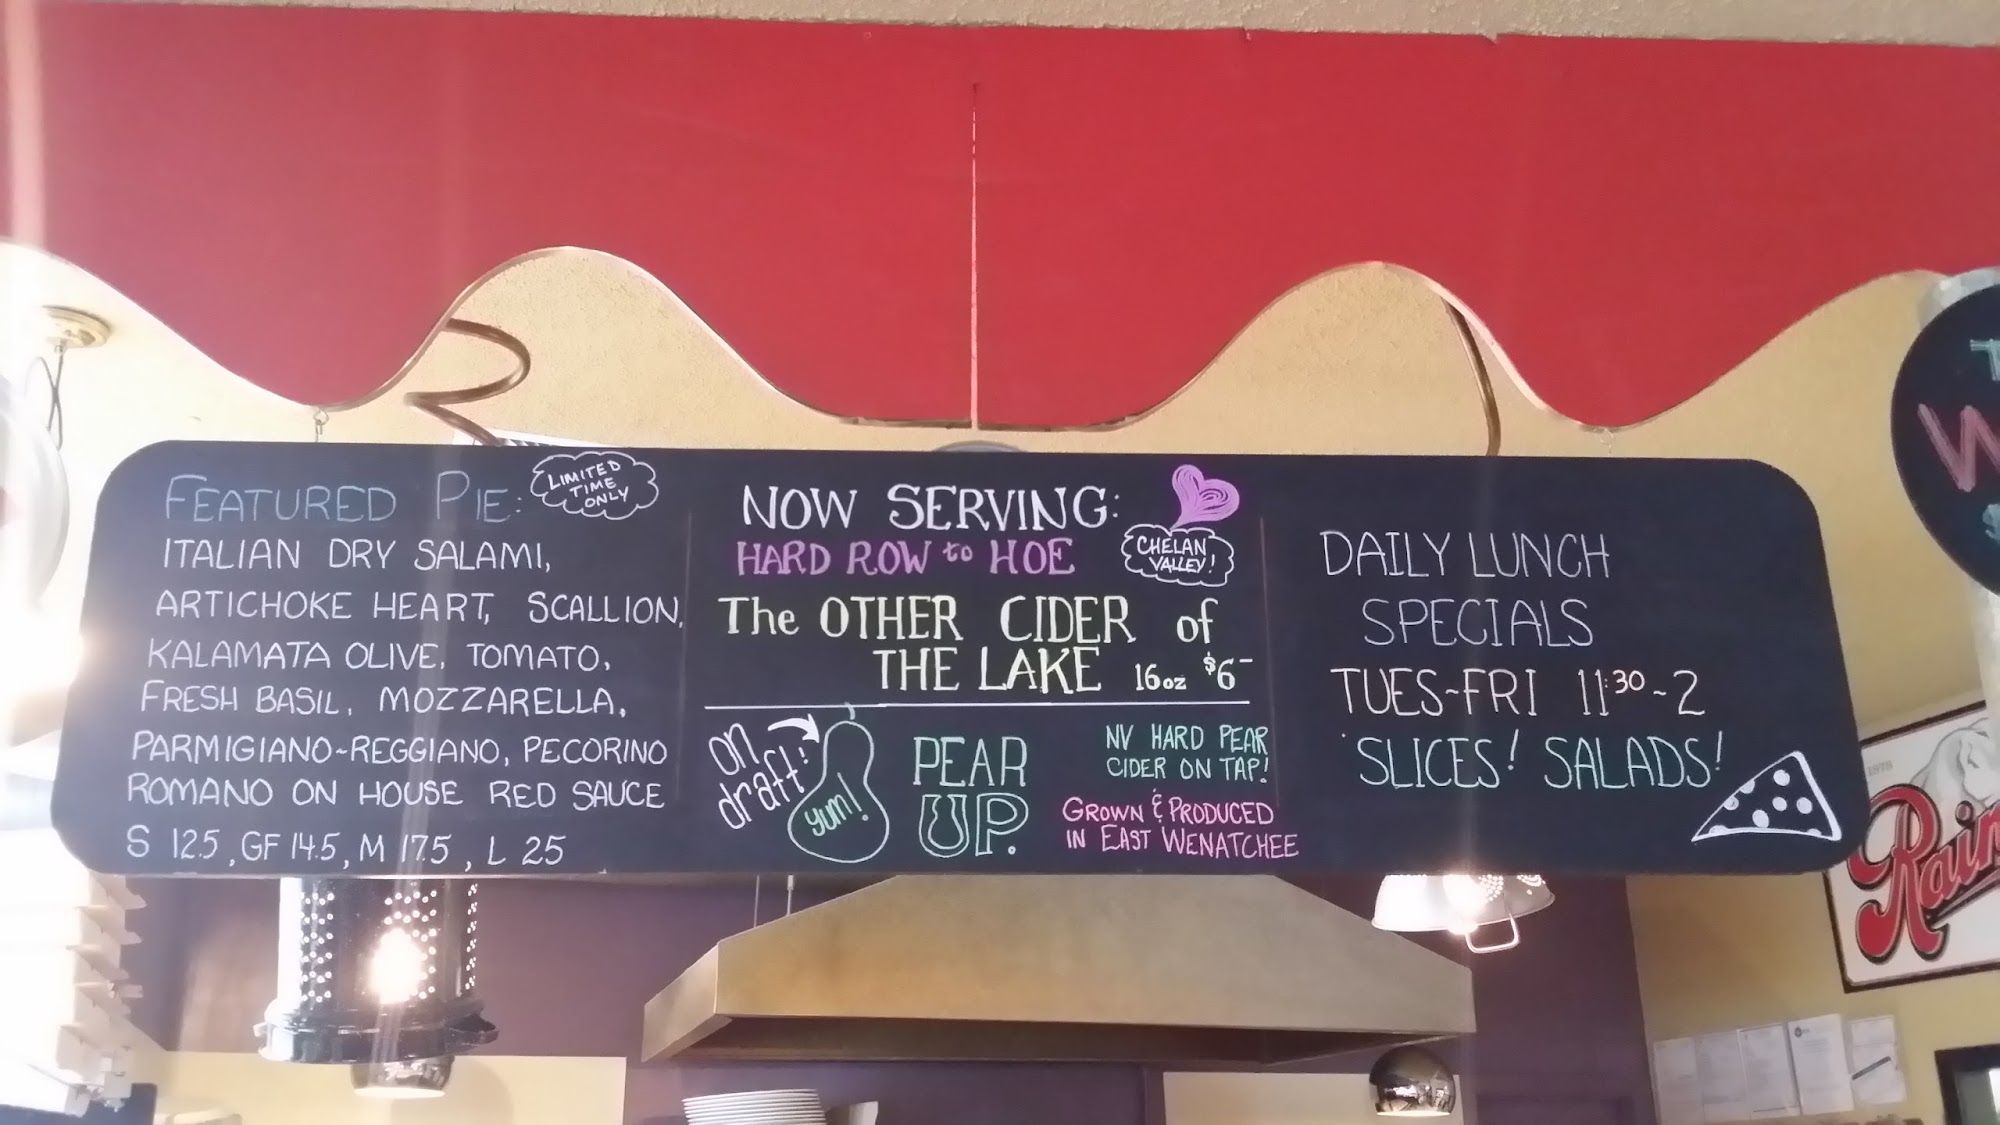 FEATURED PIE:
LIMITED
TIME
ONLY
ITALIAN DRY SALAMI,
ARTICHOKE HEART, SCALLION,
KALAMATA OLIVE, TOMATO,
FRESH BASIL, MOZZARELLA,
PARMIGIANO-REGGIANO, PECORINO
ROMANO ON HOUSE RED SAUCE
S 12.5, GF 14.5, M 17.5, L 25
NOW SERVING:
HARD ROW to HOE
CHELAN
VALLEY!
The OTHER CIDER of
THE LAKE 16oz $6-
on
draft!
yum!
PEAR
UP.
NV HARD PEAR
CIDER ON TAP!
GROWN & PRODUCED
IN EAST WENATCHEE
DAILY LUNCH
SPECIALS
TUES-FRI 11:30-2
SLICES! SALADS!
1878